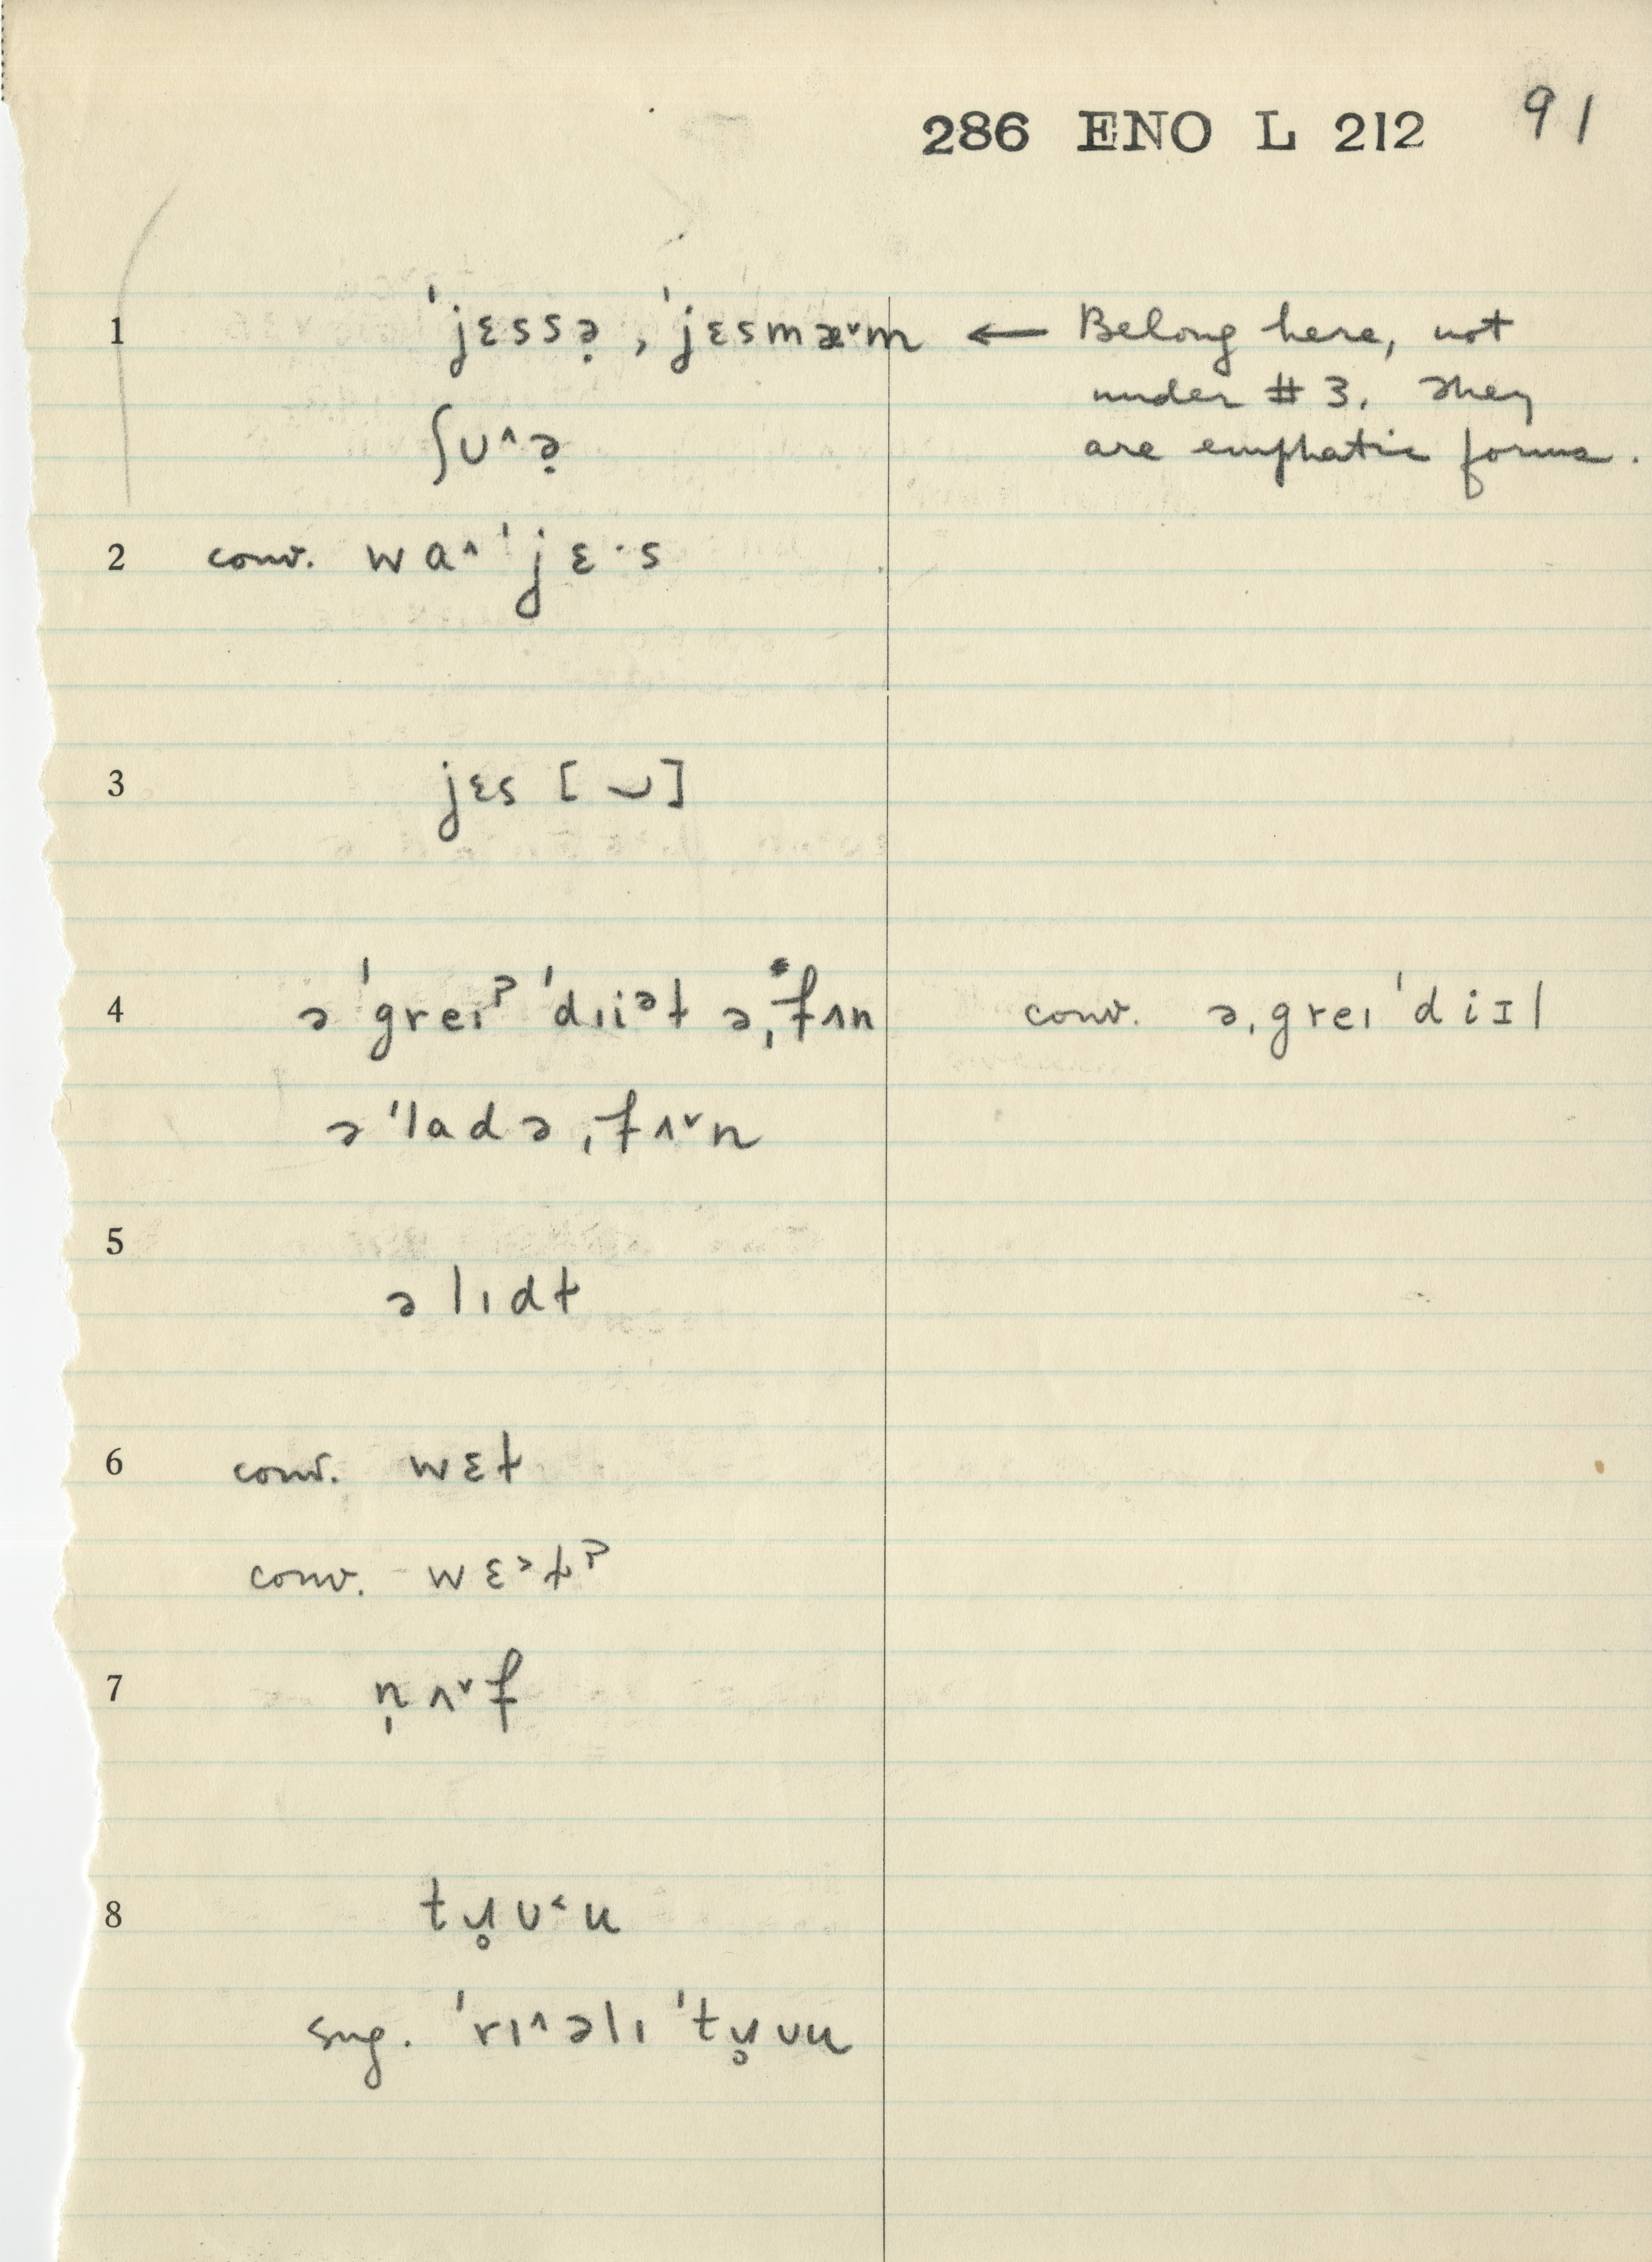 286 ENO L 212 91
1 ˈjɛssə̣, ˈjɛsmæ˅m ← Belong here, not
under # 3. They
are emphatic forms.
ʃʊ^ə̣
2 conv. wa^ˈjɛ·s
3 jɛs [ ‿ ]
4 ə ˈgreɪᵖ ˈdɪiᵊɫ ə ˌfʌn conv. əˌgreɪ ˈdiɪl
ə ˈladə ˌfʌ˅n
5
ə lɪdɫ
6 conv. wɛɫ
conv. wɛ˃ɫᵖ
7 n̩ʌ˅f
8 tɹ̥ʊ˂u
sug. ˈrɪ^əlɪ ˈtɹ̥ʊu